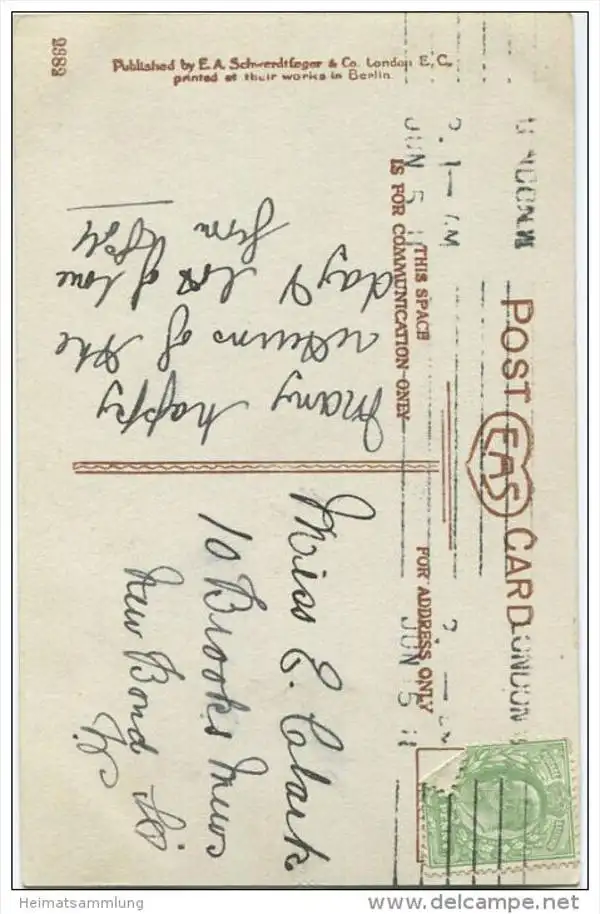 2882
Published by E.A. Schwerdtfeger & Co. London E.C.
printed at their works in Berlin.
POST CARD
EAS
THIS SPACE
IS FOR COMMUNICATION ONLY
FOR ADDRESS ONLY
LONDON
JUN 5 11
LONDON
JUN 5 11
many happy
returns of the
day & lots of love
from
Miss E. Clark
10 Brooks Mews
New Bond St
W
Heimatsammlung
www.delcampe.net